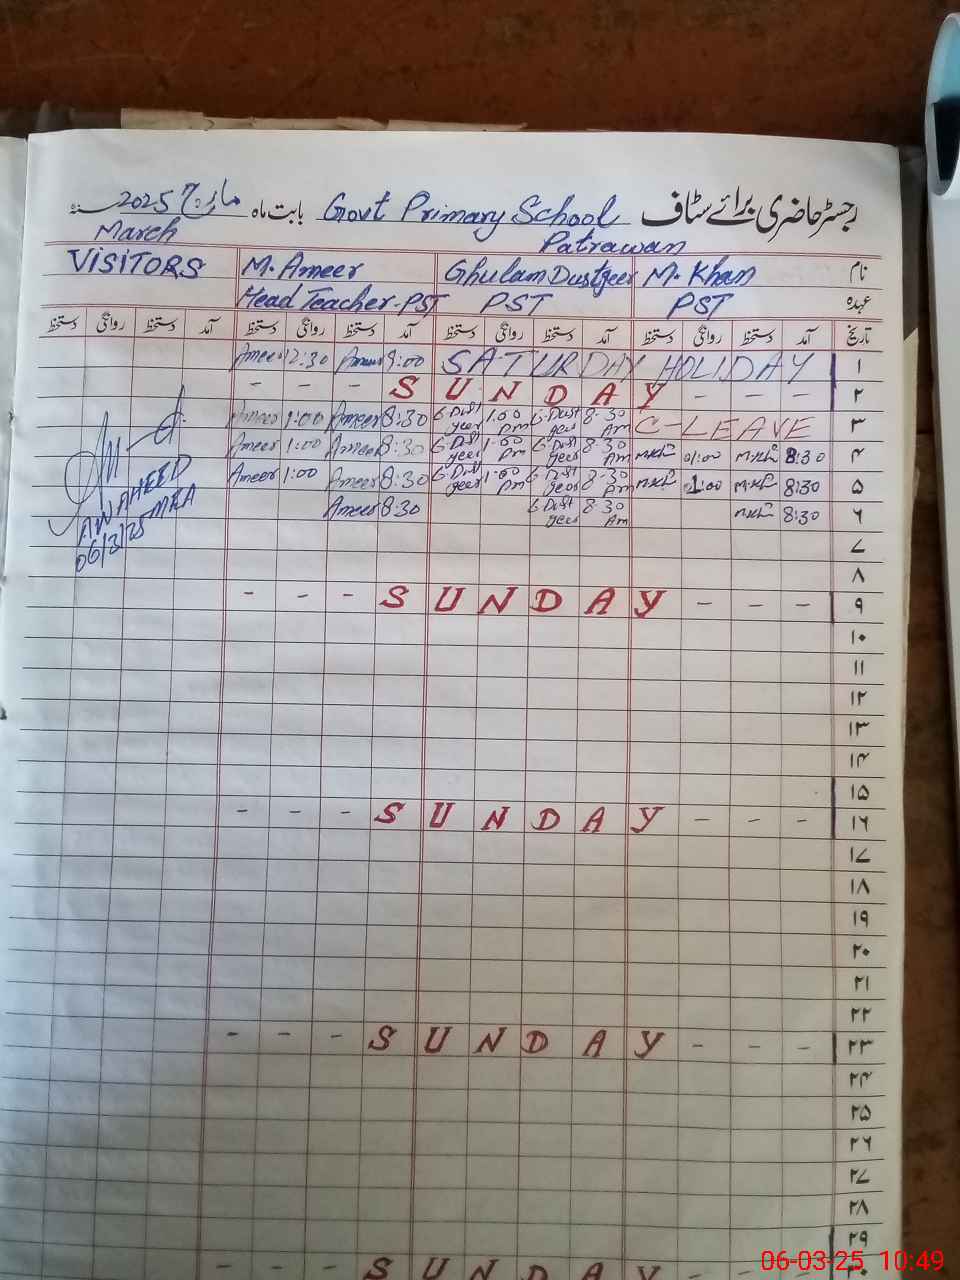 رجسٹر حاضری برائے سٹاف Govt Primary School بابت ماہ مارچ 2025 سنہ
Patrawan March
نام M. Khan Ghulam Dustgeer M. Ameer VISITORS
عہدہ PST PST Head Teacher-PST
تاریخ آمد دستخط روانگی دستخط آمد دستخط روانگی دستخط آمد دستخط روانگی دستخط آمد دستخط روانگی دستخط
۱ SATURDAY HOLIDAY 9:00 Ameer 12:30 Ameer
۲ - - - SUNDAY - - -
۳ C-LEAVE 8-30 Am G-Dustgeer 1:00 Pm G-Dustgeer 8:30 Ameer 1:00 Ameer
۴ 8:30 01:00 8-30 Am G-Dustgeer 1:00 Pm G-Dustgeer 8:30 Ameer 1:00 Ameer
۵ 8:30 1:00 8-30 Am G-Dustgeer 1:00 Pm G-Dustgeer 8:30 Ameer 1:00 Ameer
۶ 8:30 8-30 Am G-Dustgeer 8:30 Ameer
MEA
06/3/25
۷
۸
۹ - - - SUNDAY - - -
۱۰
۱۱
۱۲
۱۳
۱۴
۱۵
۱۶ - - - SUNDAY - - -
۱۷
۱۸
۱۹
۲۰
۲۱
۲۲
۲۳ - - - SUNDAY - - -
۲۴
۲۵
۲۶
۲۷
۲۸
۲۹
۳۰ - - - SUNDAY - - -
06-03-25 10:49